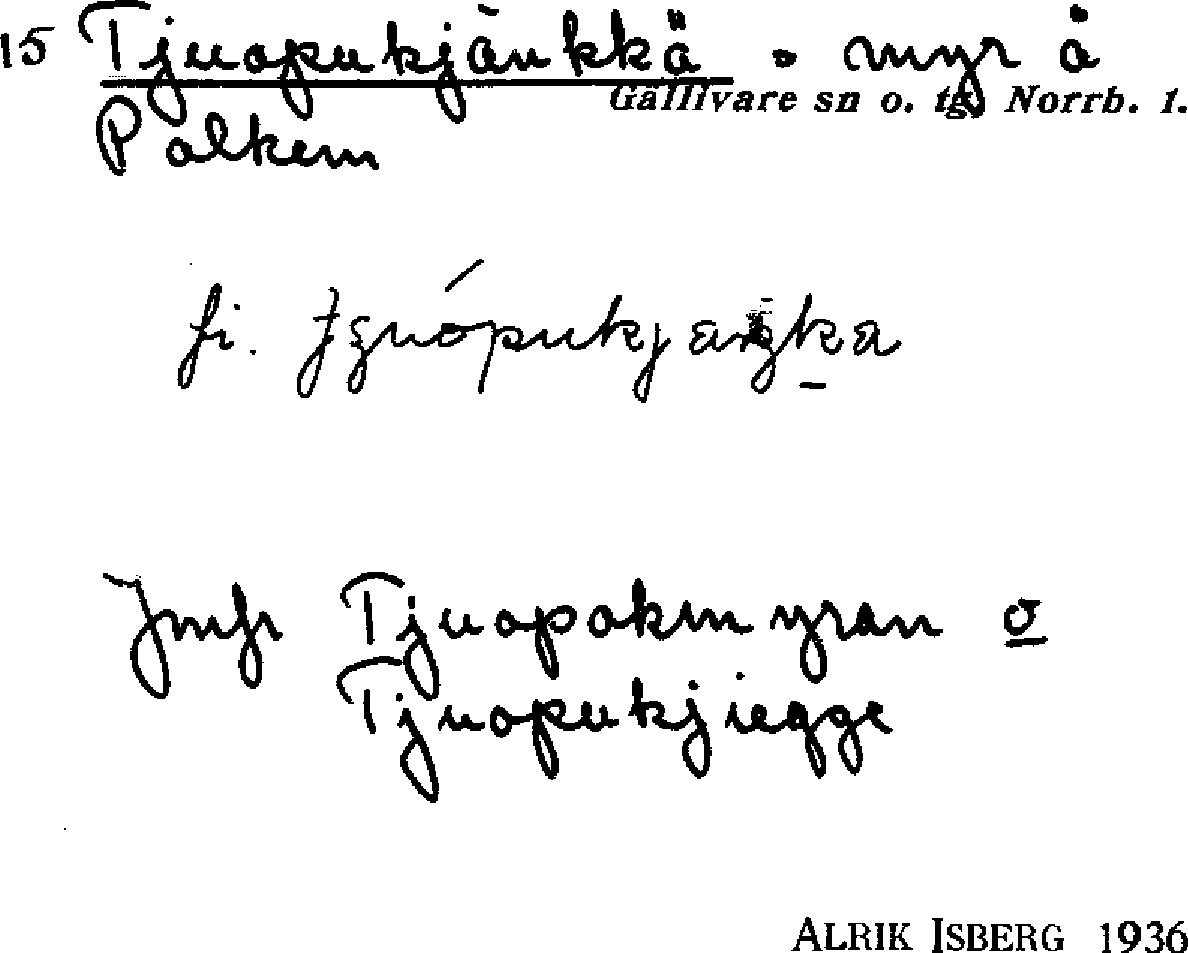 15 Tjuopukjänkkä • myr å
Gällivare sn o. tg, Norrb. l.
Palkem
fi.
Jmfr Tjuopokmyran o
Tjuopukjiegge
ALRIK ISBERG 1936